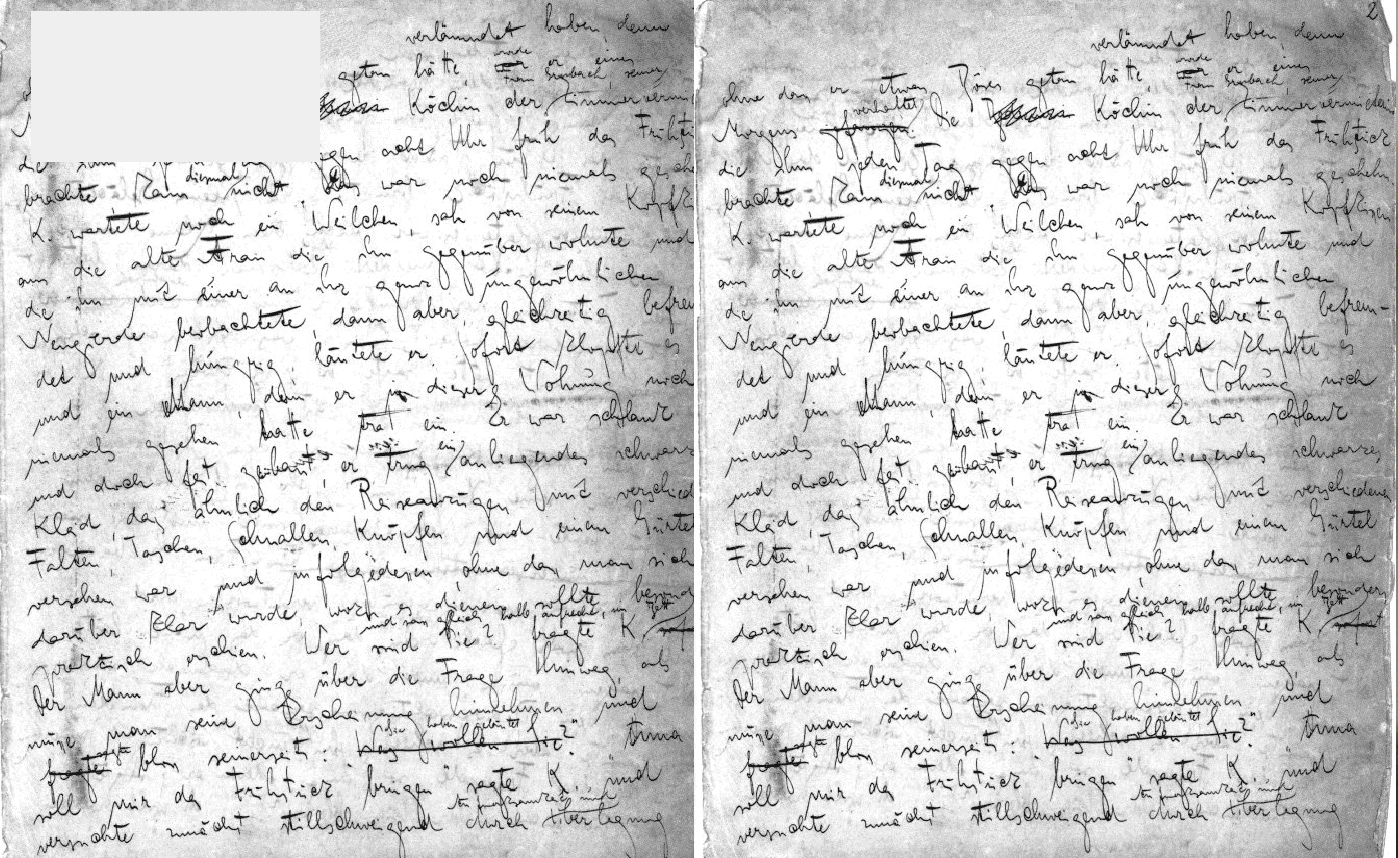 verläumdet haben, denn
getan hätte, wurde er eines
Frau Grubach, seiner
Köchin der Zimmerverm
gegen acht Uhr früh das Frühst
brachte kam diesmal nicht. Das war noch niemals gescheh
K. wartete noch ein Weilchen, sah von seinem Kopfki
aus die alte Frau die ihm gegenüber wohnte und
die ihn mit einer an ihr ganz ungewöhnlichen
Neugierde beobachtete, dann aber, gleichzeitig befrem
det und hungrig, läutete er. Sofort klopfte es
und ein Mann, den er in dieser Wohnung noch
niemals gesehen hatte trat ein. Er war schlank
und doch fest gebaut, er trug ein anliegendes schwarzes
Kleid, das ähnlich den Reiseanzügen mit verschied
Falten, Taschen, Schnallen, Knöpfen und einem Gürtel
versehen war und infolgedessen, ohne dass man sich
darüber klar wurde, wozu es dienen sollte, besond
und sass gleich halb aufrecht im Bett
praktisch erschien. Wer sind Sie? fragte K.
Der Mann aber ging über die Frage hinweg, als
müsse man seine Erscheinung hinnehmen und
sagte
Sie haben geläutet
fragte bloss seinerseits: Was wollen Sie?" Anna
soll mir das Frühstück bringen" sagte K. und
versuchte zunächst stillschweigend durch Überlegung
2
verläumdet haben, denn
ohne dass er etwas Böses getan hätte, wurde er eines
verhaftet
Frau Grubach, seiner
Morgens gefangen. Die Köchin der Zimmervermieterin
die ihm jeden Tag gegen acht Uhr früh das Frühstück
brachte kam diesmal nicht. Das war noch niemals geschehn
K. wartete noch ein Weilchen, sah von seinem Kopfkissen
aus die alte Frau die ihm gegenüber wohnte und
die ihn mit einer an ihr ganz ungewöhnlichen
Neugierde beobachtete, dann aber, gleichzeitig befrem-
det und hungrig, läutete er. Sofort klopfte es
und ein Mann, den er in dieser Wohnung noch
niemals gesehen hatte trat ein. Er war schlank
und doch fest gebaut, er trug ein anliegendes schwarzes
Kleid, das ähnlich den Reiseanzügen mit verschiedenen
Falten, Taschen, Schnallen, Knöpfen und einem Gürtel
versehen war und infolgedessen, ohne dass man sich
darüber klar wurde, wozu es dienen sollte, besonders
und sass gleich halb aufrecht im Bett
praktisch erschien. Wer sind Sie? fragte K.
Der Mann aber ging über die Frage hinweg, als
müsse man seine Erscheinung hinnehmen und
sagte
Sie haben geläutet
fragte bloss seinerseits: Was wollen Sie?" Anna
soll mir das Frühstück bringen" sagte K. und
versuchte zunächst stillschweigend durch Überlegung